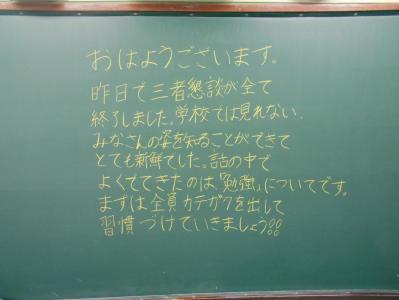 おはようございます。
昨日で三者懇談が全て
終了しました。学校では見れない、
みなさんの姿を知ることができて
とても新鮮でした。話の中で
よくでてきたのは、「勉強」についてです。
まずは全員カテガクを出して
習慣づけていきましょう!!